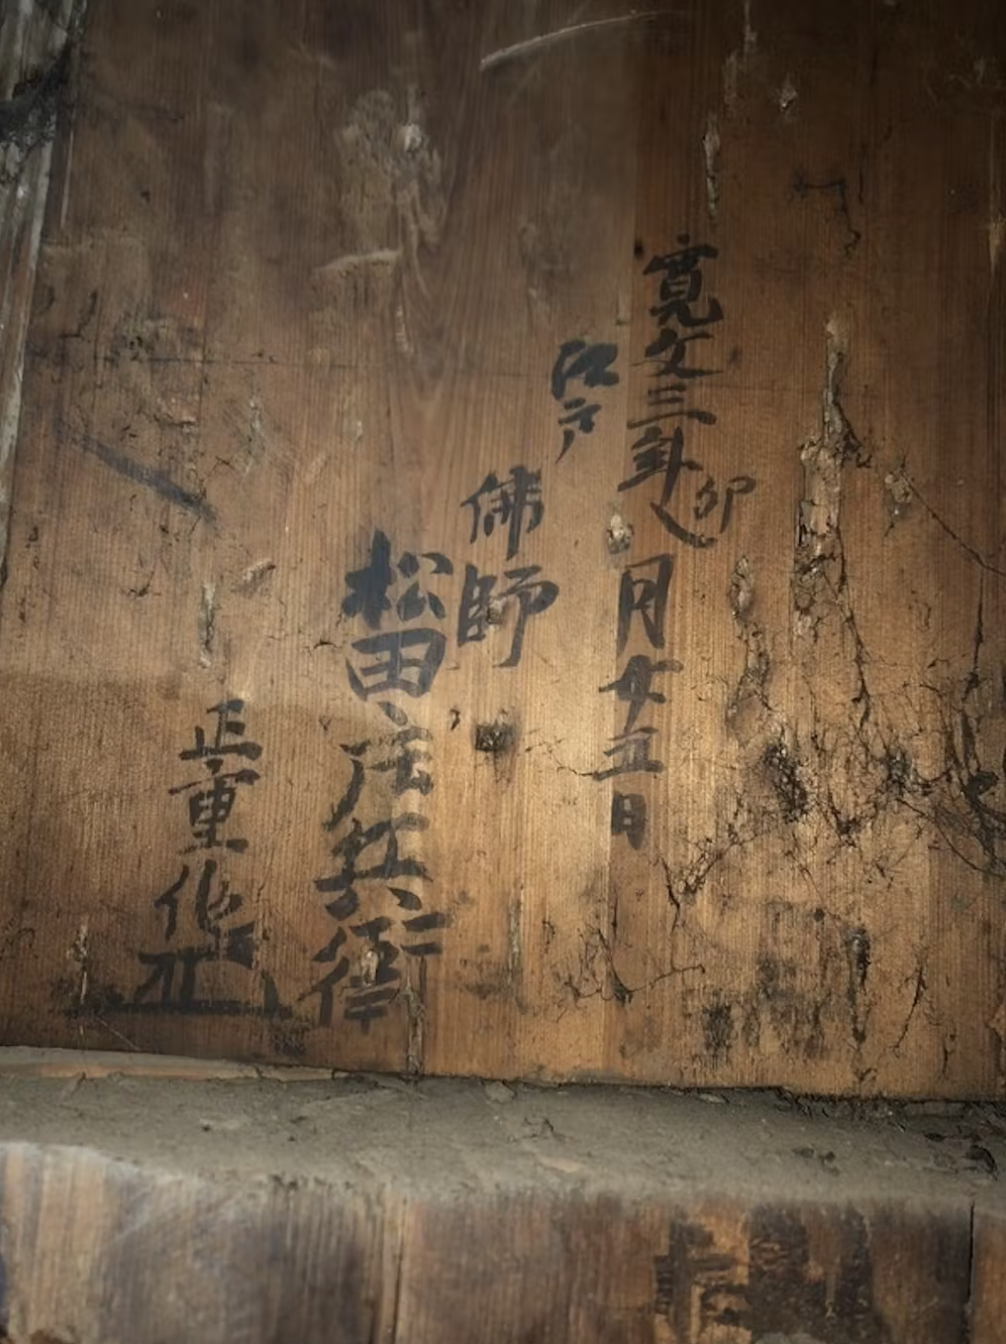 寛文三年卯八月廿五日
江戸
佛師
松田庄兵衛
正重作